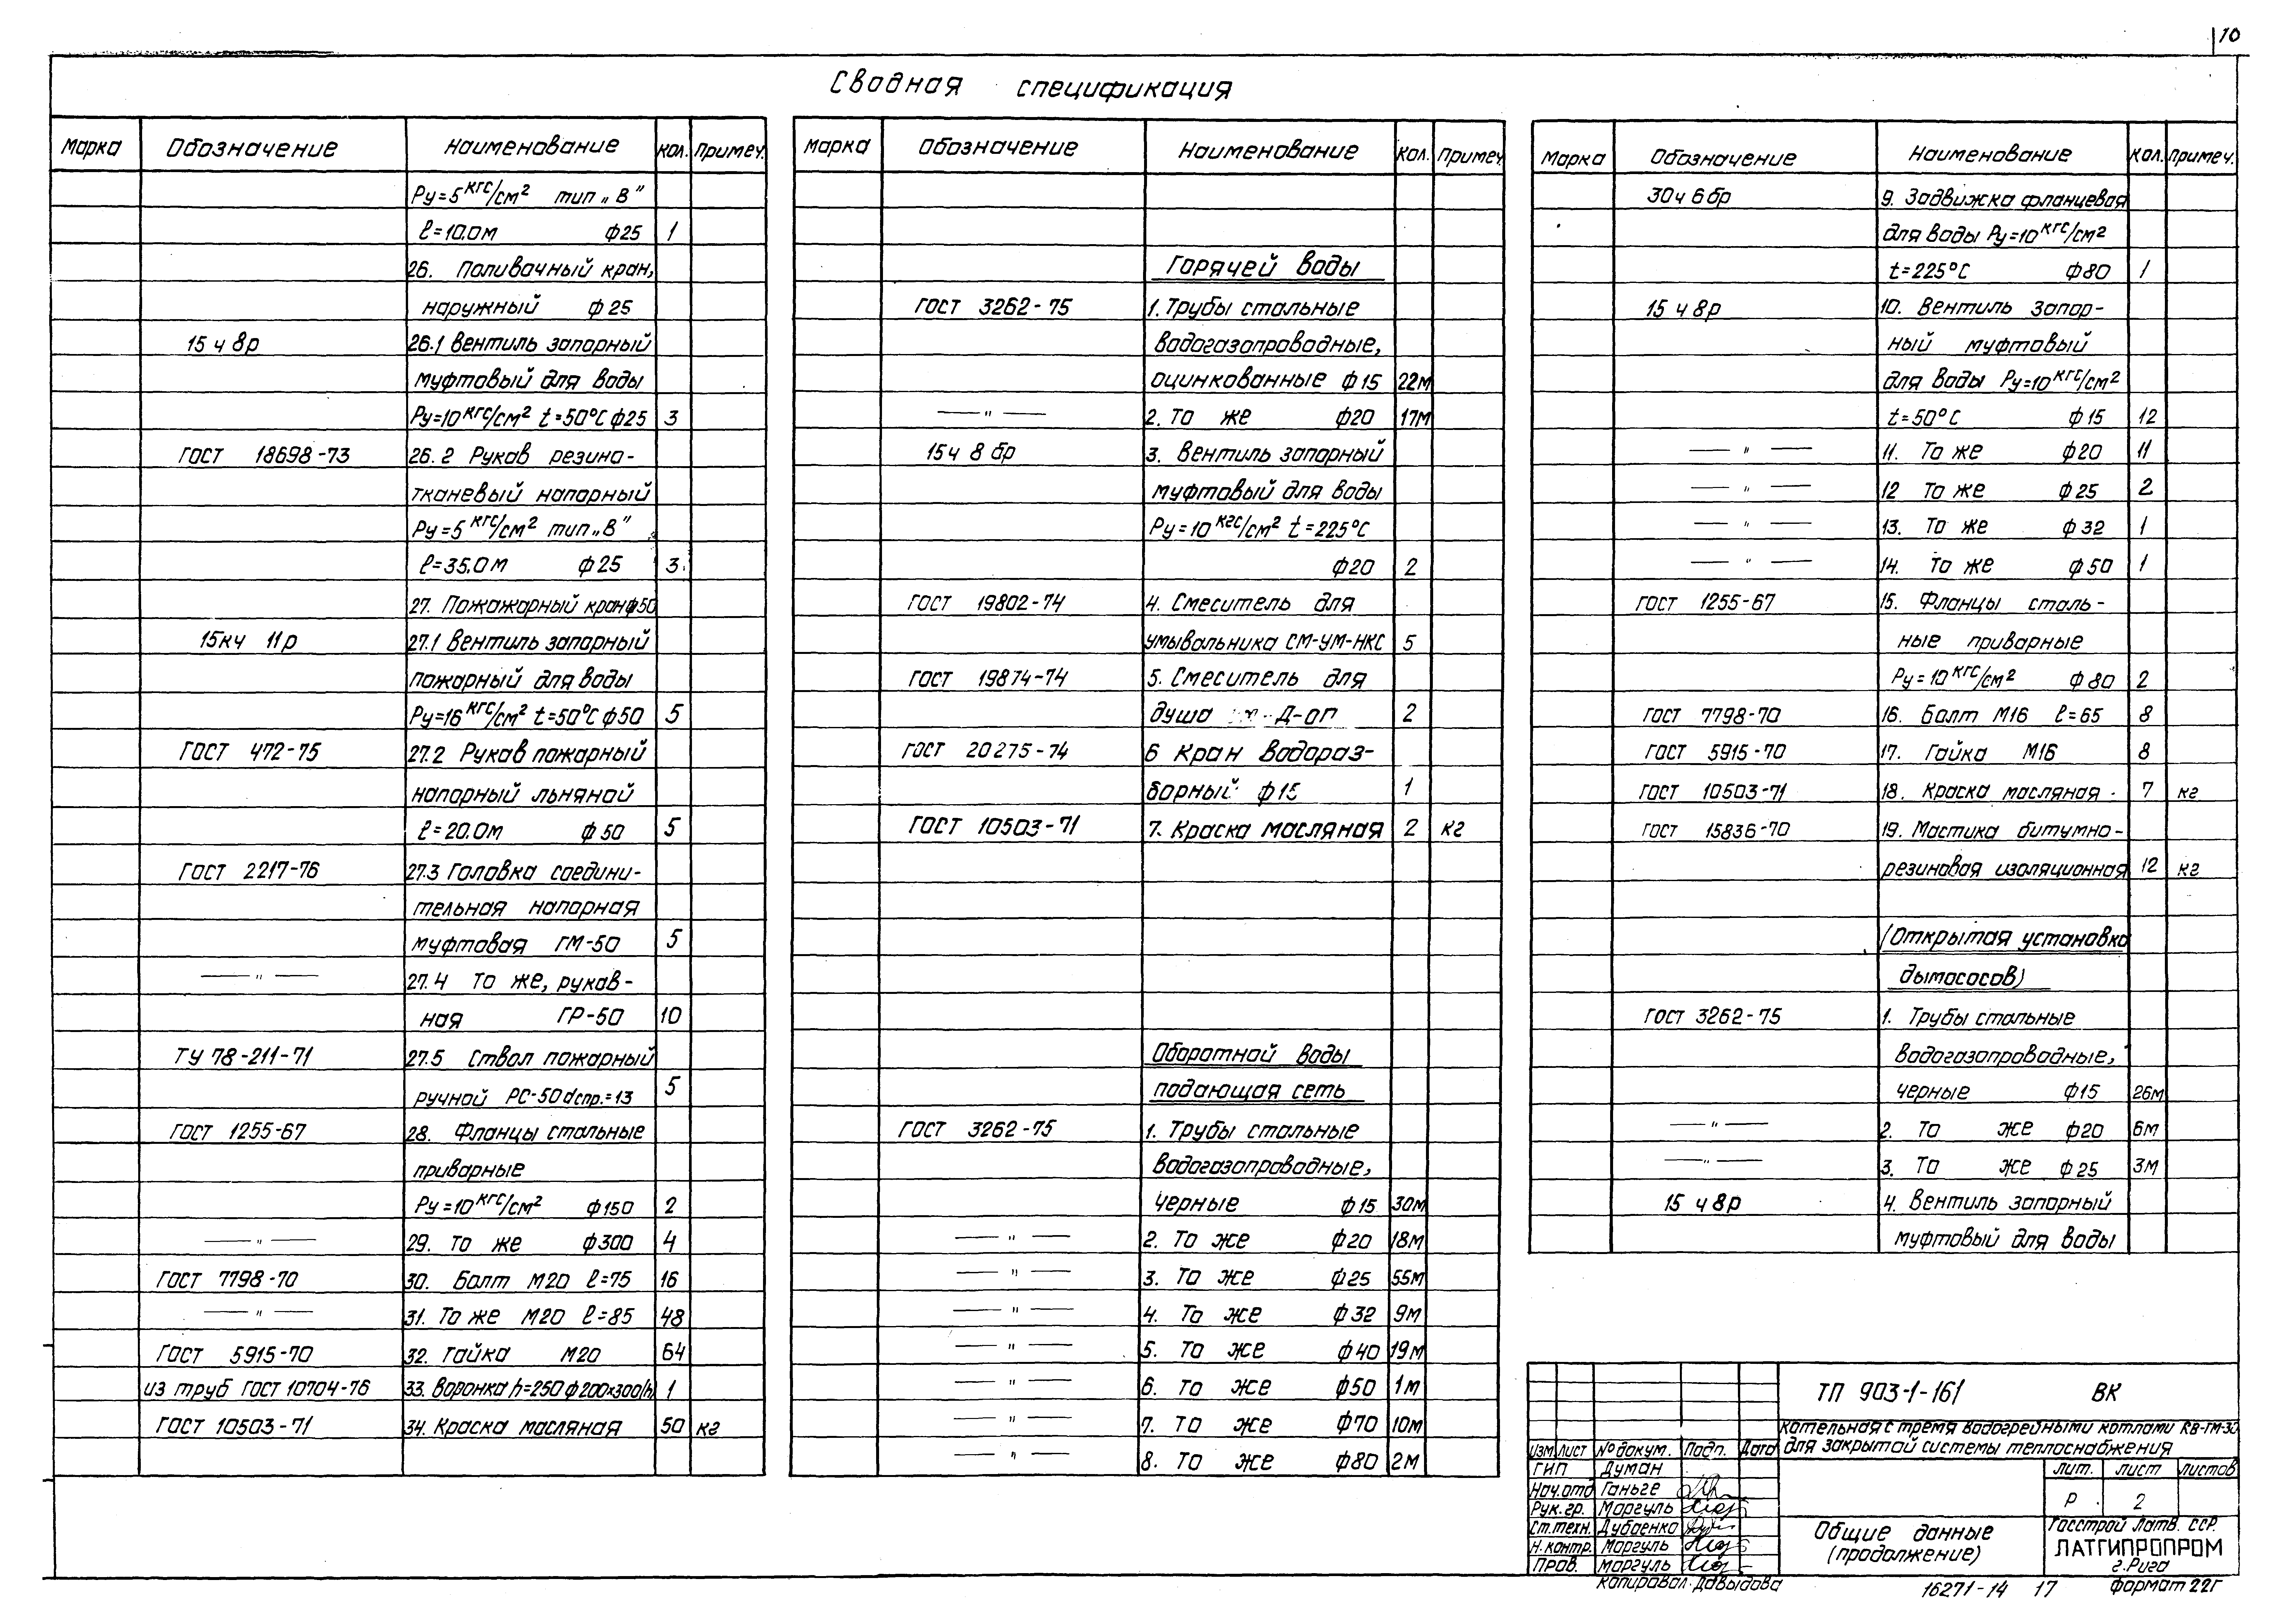 10
Сводная спецификация
Марка Обозначение Наименование Кол. Примеч.
Ру=5 кгс/см² тип „В"
ℓ=10.0м ф25 1
26. Поливочный кран,
наружный ф25
15ч8р 26.1 Вентиль запорный
муфтовый для воды
Ру=10 кгс/см² t=50°С ф25 3
ГОСТ 18698-73 26.2 Рукав резино-
тканевый напорный
Ру=5 кгс/см² тип „В"
ℓ=35.0м ф25 3
27. Пожажорный кран ф50
15кч 11р 27.1 Вентиль запорный
пожарный для воды
Ру=16 кгс/см² t=50°С ф50 5
ГОСТ 472-75 27.2 Рукав пожарный
напорный льняной
ℓ=20.0м ф50 5
ГОСТ 2217-76 27.3 Головка соедини-
тельная напорная
муфтовая ГМ-50 5
—"— 27.4 То же, рукав-
ная ГР-50 10
ТУ 78-211-71 27.5 Ствол пожарный
ручной РС-50 dспр.=13 5
ГОСТ 1255-67 28. Фланцы стальные
приварные
Ру=10 кгс/см² ф150 2
—"— 29. То же ф300 4
ГОСТ 7798-70 30. Болт М20 ℓ=75 16
—"— 31. То же М20 ℓ=85 48
ГОСТ 5915-70 32. Гайка М20 64
из труб ГОСТ 10704-76 33. Воронка h=250 ф200×300(h) 1
ГОСТ 10503-71 34. Краска масляная 50 кг
Марка Обозначение Наименование Кол. Примеч.
Горячей воды
ГОСТ 3262-75 1. Трубы стальные
водогазопроводные,
оцинкованные ф15 22м
—"— 2. То же ф20 17м
15ч 8бр 3. Вентиль запорный
муфтовый для воды
Ру=10 кгс/см² t=225°С
ф20 2
ГОСТ 19802-74 4. Смеситель для
умывальника СМ-УМ-НКС 5
ГОСТ 19874-74 5. Смеситель для
душа -Д-ОП 2
ГОСТ 20275-74 6 Кран водораз-
борный ф15 1
ГОСТ 10503-71 7. Краска масляная 2 кг
Оборотной воды
подающая сеть
ГОСТ 3262-75 1. Трубы стальные
водогазопроводные,
черные ф15 30м
—"— 2. То же ф20 18м
—"— 3. То же ф25 55м
—"— 4. То же ф32 9м
—"— 5. То же ф40 19м
—"— 6. То же ф50 1м
—"— 7. То же ф70 10м
—"— 8. То же ф80 2м
Марка Обозначение Наименование Кол. Примеч.
30ч 6бр 9. Задвижка фланцевая
для воды Ру=10 кгс/см²
t=225°С ф80 1
15ч8р 10. Вентиль запор-
ный муфтовый
для воды Ру=10 кгс/см²
t=50°С ф15 12
—"— 11. То же ф20 11
—"— 12 То же ф25 2
—"— 13. То же ф32 1
—"— 14. То же ф50 1
ГОСТ 1255-67 15. Фланцы сталь-
ные приварные
Ру=10 кгс/см² ф80 2
ГОСТ 7798-70 16. Болт М16 ℓ=65 8
ГОСТ 5915-70 17. Гайка М16 8
ГОСТ 10503-71 18. Краска масляная 7 кг
ГОСТ 15836-70 19. Мастика битумно-
резиновая изоляционная 12 кг
(Открытая установка
дымососов)
ГОСТ 3262-75 1. Трубы стальные
водогазопроводные,
черные ф15 26м
—"— 2. То же ф20 6м
—"— 3. То же ф25 3м
15ч8р 4. Вентиль запорный
муфтовый для воды
ТП 903-1-161 ВК
Котельная с тремя водогрейными котлами КВ-ГМ-30
для закрытой системы теплоснабжения
Изм. Лист № докум. Подп. Дата
ГИП Думан
Нач.отд Ганьге
Рук.гр. Маргуль
Ст.техн. Дубаенко
Н.контр. Маргуль
Пров. Маргуль
Лит. Лист Листов
Р 2
Общие данные
(продолжение)
Госстрой Латв. ССР.
ЛАТГИПРОПРОМ
г.Рига
Копировал: Давыдова 16271-14 17 Формат 22г